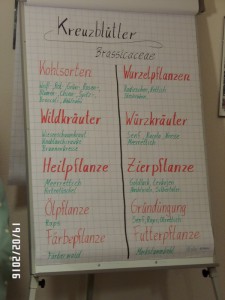 Kreuzblütler
Brassicaceae
Kohlsorten
Weiß-, Rot-, Grün-, Rosen-,
Blumen-, Chinakohl, Spitz-,
Brokkoli, Kohlrabi
Wurzelpflanzen
Radieschen, Rettich,
Wildkräuter
Wiesenschaumkraut
Knoblauchsrauke
Brunnenkresse
Würzkräuter
Senf, Rapke, Kresse
Meerrettich
Heilpflanze
Meerrettich
Zierpflanze
Goldlack,
Ölpflanze
Raps
Gründüngung
Senf, Raps, Ölrettich
Färbepflanze
Färberwaid
Futterpflanze
19/02/2016